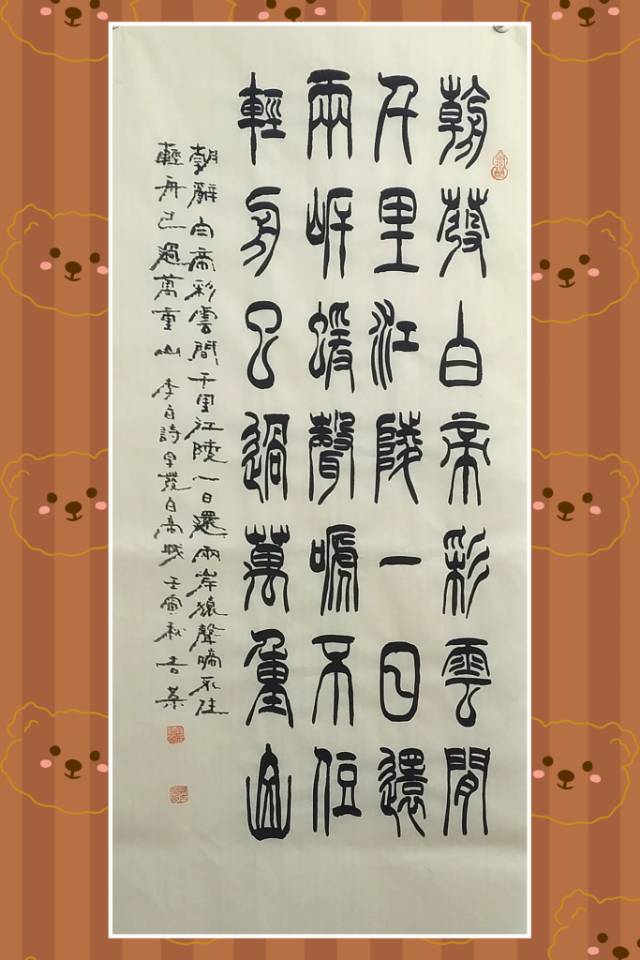 朝發白帝彩雲閒
千里江陵一日還
兩岸蝯聲嗁不住
輕舟已過萬重山
朝辭白帝彩雲間千里江陵一日還兩岸猿聲啼不住
輕舟已過萬重山 李白詩早發白帝城 壬寅秋